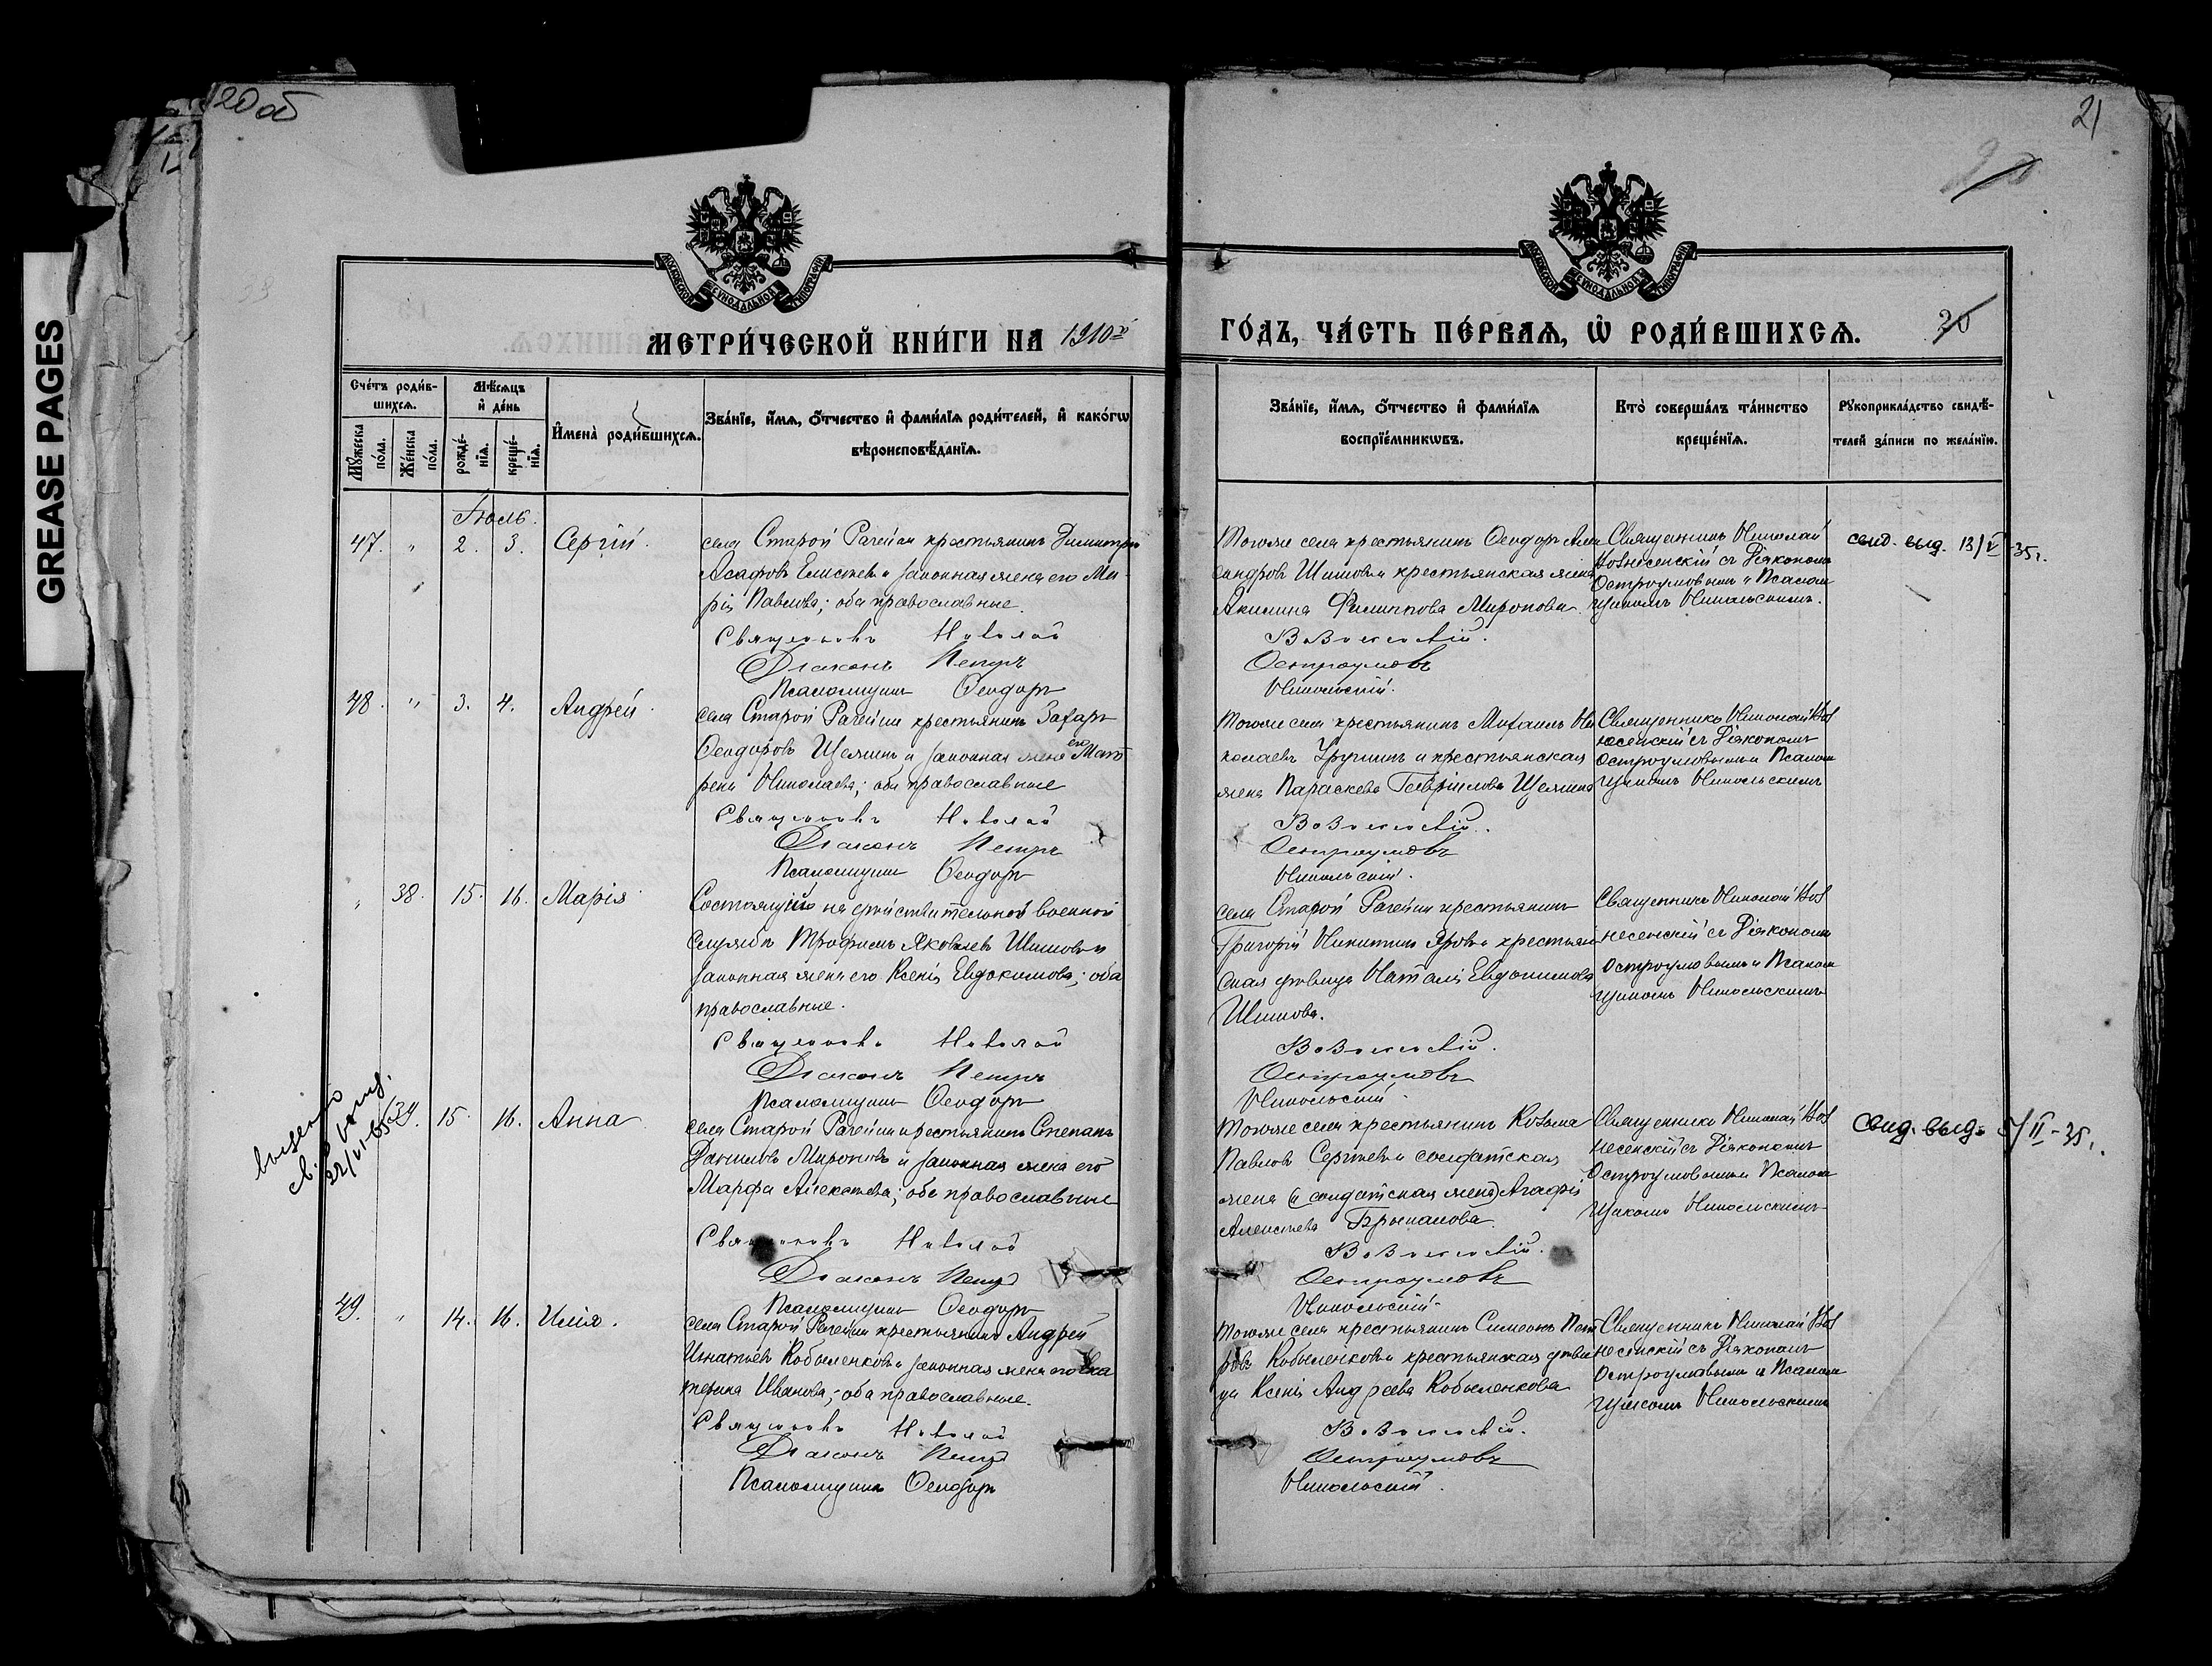 20 об
21
20
GREASE PAGES
МОСКОВСКОЙ СѴНОДАЛЬНОЙ ТИПОГРАФІИ
МОСКОВСКОЙ СѴНОДАЛЬНОЙ ТИПОГРАФІИ
МЕТРИ́ЧЕСКОЙ КНИ́ГИ НА 1910й
ГО́ДЪ, ЧА́СТЬ ПЕ́РВАѦ, Ѽ РОДИ́ВШИХСѦ.
20
Сче́тъ роди́в-
шихсѧ.
Мѣ́сѧцъ
и҆ де́нь
Мꙋ́жеска
по́ла.
Же́нска
по́ла.
рожде́-
нїѧ.
креще́-
нїѧ.
И҆мена̀ роди́вшихсѧ.
Зва́нїе, и҆́мѧ, ѻ҆́тчество и҆ фами́лїѧ роди́телей, и҆ како́гѡ
вѣроисповѣ́данїѧ.
Зва́нїе, и҆́мѧ, ѻ҆́тчество и҆ фами́лїѧ
воспрїе́мникѡвъ.
Кто̀ соверша́лъ та́инство
креще́нїѧ.
Рꙋкоприкла́дство свидѣ́-
телей за́писи по жела́нїю.
Іюль.
47. " 2. 3. Сергій.
села Старой Рачейки крестьянинъ Димитрій
Асафовъ Елисѣевъ и законная жена его Ма-
рія Павлова; оба православные.
Священникъ Николай
Діаконъ Петръ
Псаломщикъ Ѳеодоръ
Тогоже села крестьянинъ Ѳеодоръ Алек
сандровъ Шишовъ и крестьянская жена
Акилина Филиппова Миронова.
Вознесенскій.
Остроумовъ
Никольскій.
Священникъ Николай
Вознесенскій съ Діакономъ
Остроумовымъ и Псалом
щикомъ Никольскимъ.
свид. выд. 13/V-35г.
48. " 3. 4. Андрей.
села Старой Рачейки крестьянинъ Захаръ
Ѳеодоровъ Щелкинъ и законная жена его Мат
рена Николаева; оба православные
Священникъ Николай
Діаконъ Петръ
Псаломщикъ Ѳеодоръ
Тогоже села крестьянинъ Михаилъ Ни
колаевъ и крестьянская
жена Параскева Гавріилова
Вознесенскій.
Остроумовъ
Никольскій.
Священникъ Николай Воз
несенскій съ Діакономъ
Остроумовымъ и Псалом
щикомъ Никольскимъ
" 38. 15. 16. Марія
Состоящій на дѣйствительной военной
службѣ Трофимъ Яковлевъ Шишовъ и
законная жена его Ксенія Евдокимова; оба
православные.
Священникъ Николай
Діаконъ Петръ
Псаломщикъ Ѳеодоръ
села Старой Рачейки крестьянинъ
Григорій Никитинъ и крестьян
ская дѣвица Наталія Евдокимова
Шишова.
Вознесенскій.
Остроумовъ
Никольскій.
Священникъ Николай Воз
несенскій съ Діакономъ
Остроумовымъ и Псалом
щикомъ Никольскимъ
39. 15. 16. Анна
села Старой Рачейки крестьянинъ Степанъ
Даниловъ Мироновъ и законная жена его
Марфа Алексѣева; оба православные
Священникъ Николай
Діаконъ Петръ
Псаломщикъ Ѳеодоръ
Тогоже села крестьянинъ Козьма
Павловъ Сергѣевъ и солдатская
жена (и солдатская жена) Агафія
Алексѣева
Вознесенскій.
Остроумовъ
Никольскій.
Священникъ Николай Воз
несенскій съ Діакономъ
Остроумовымъ и Псалом
щикомъ Никольскимъ
свид. выд. 5/II-35г.
49. " 14. 16. Илія.
села Старой Рачейки крестьянинъ Андрей
Игнатьевъ Кобыленковъ и законная жена его Ека
терина Иванова; оба православные.
Священникъ Николай
Діаконъ Петръ
Псаломщикъ Ѳеодоръ
Тогоже села крестьянинъ Симеонъ Пет
ровъ Кобыленковъ и крестьянская дѣви
ца Ксенія Андреева Кобыленкова
Вознесенскій.
Остроумовъ
Никольскій.
Священникъ Николай Воз
несенскій съ Діакономъ
Остроумовымъ и Псалом
щикомъ Никольскимъ